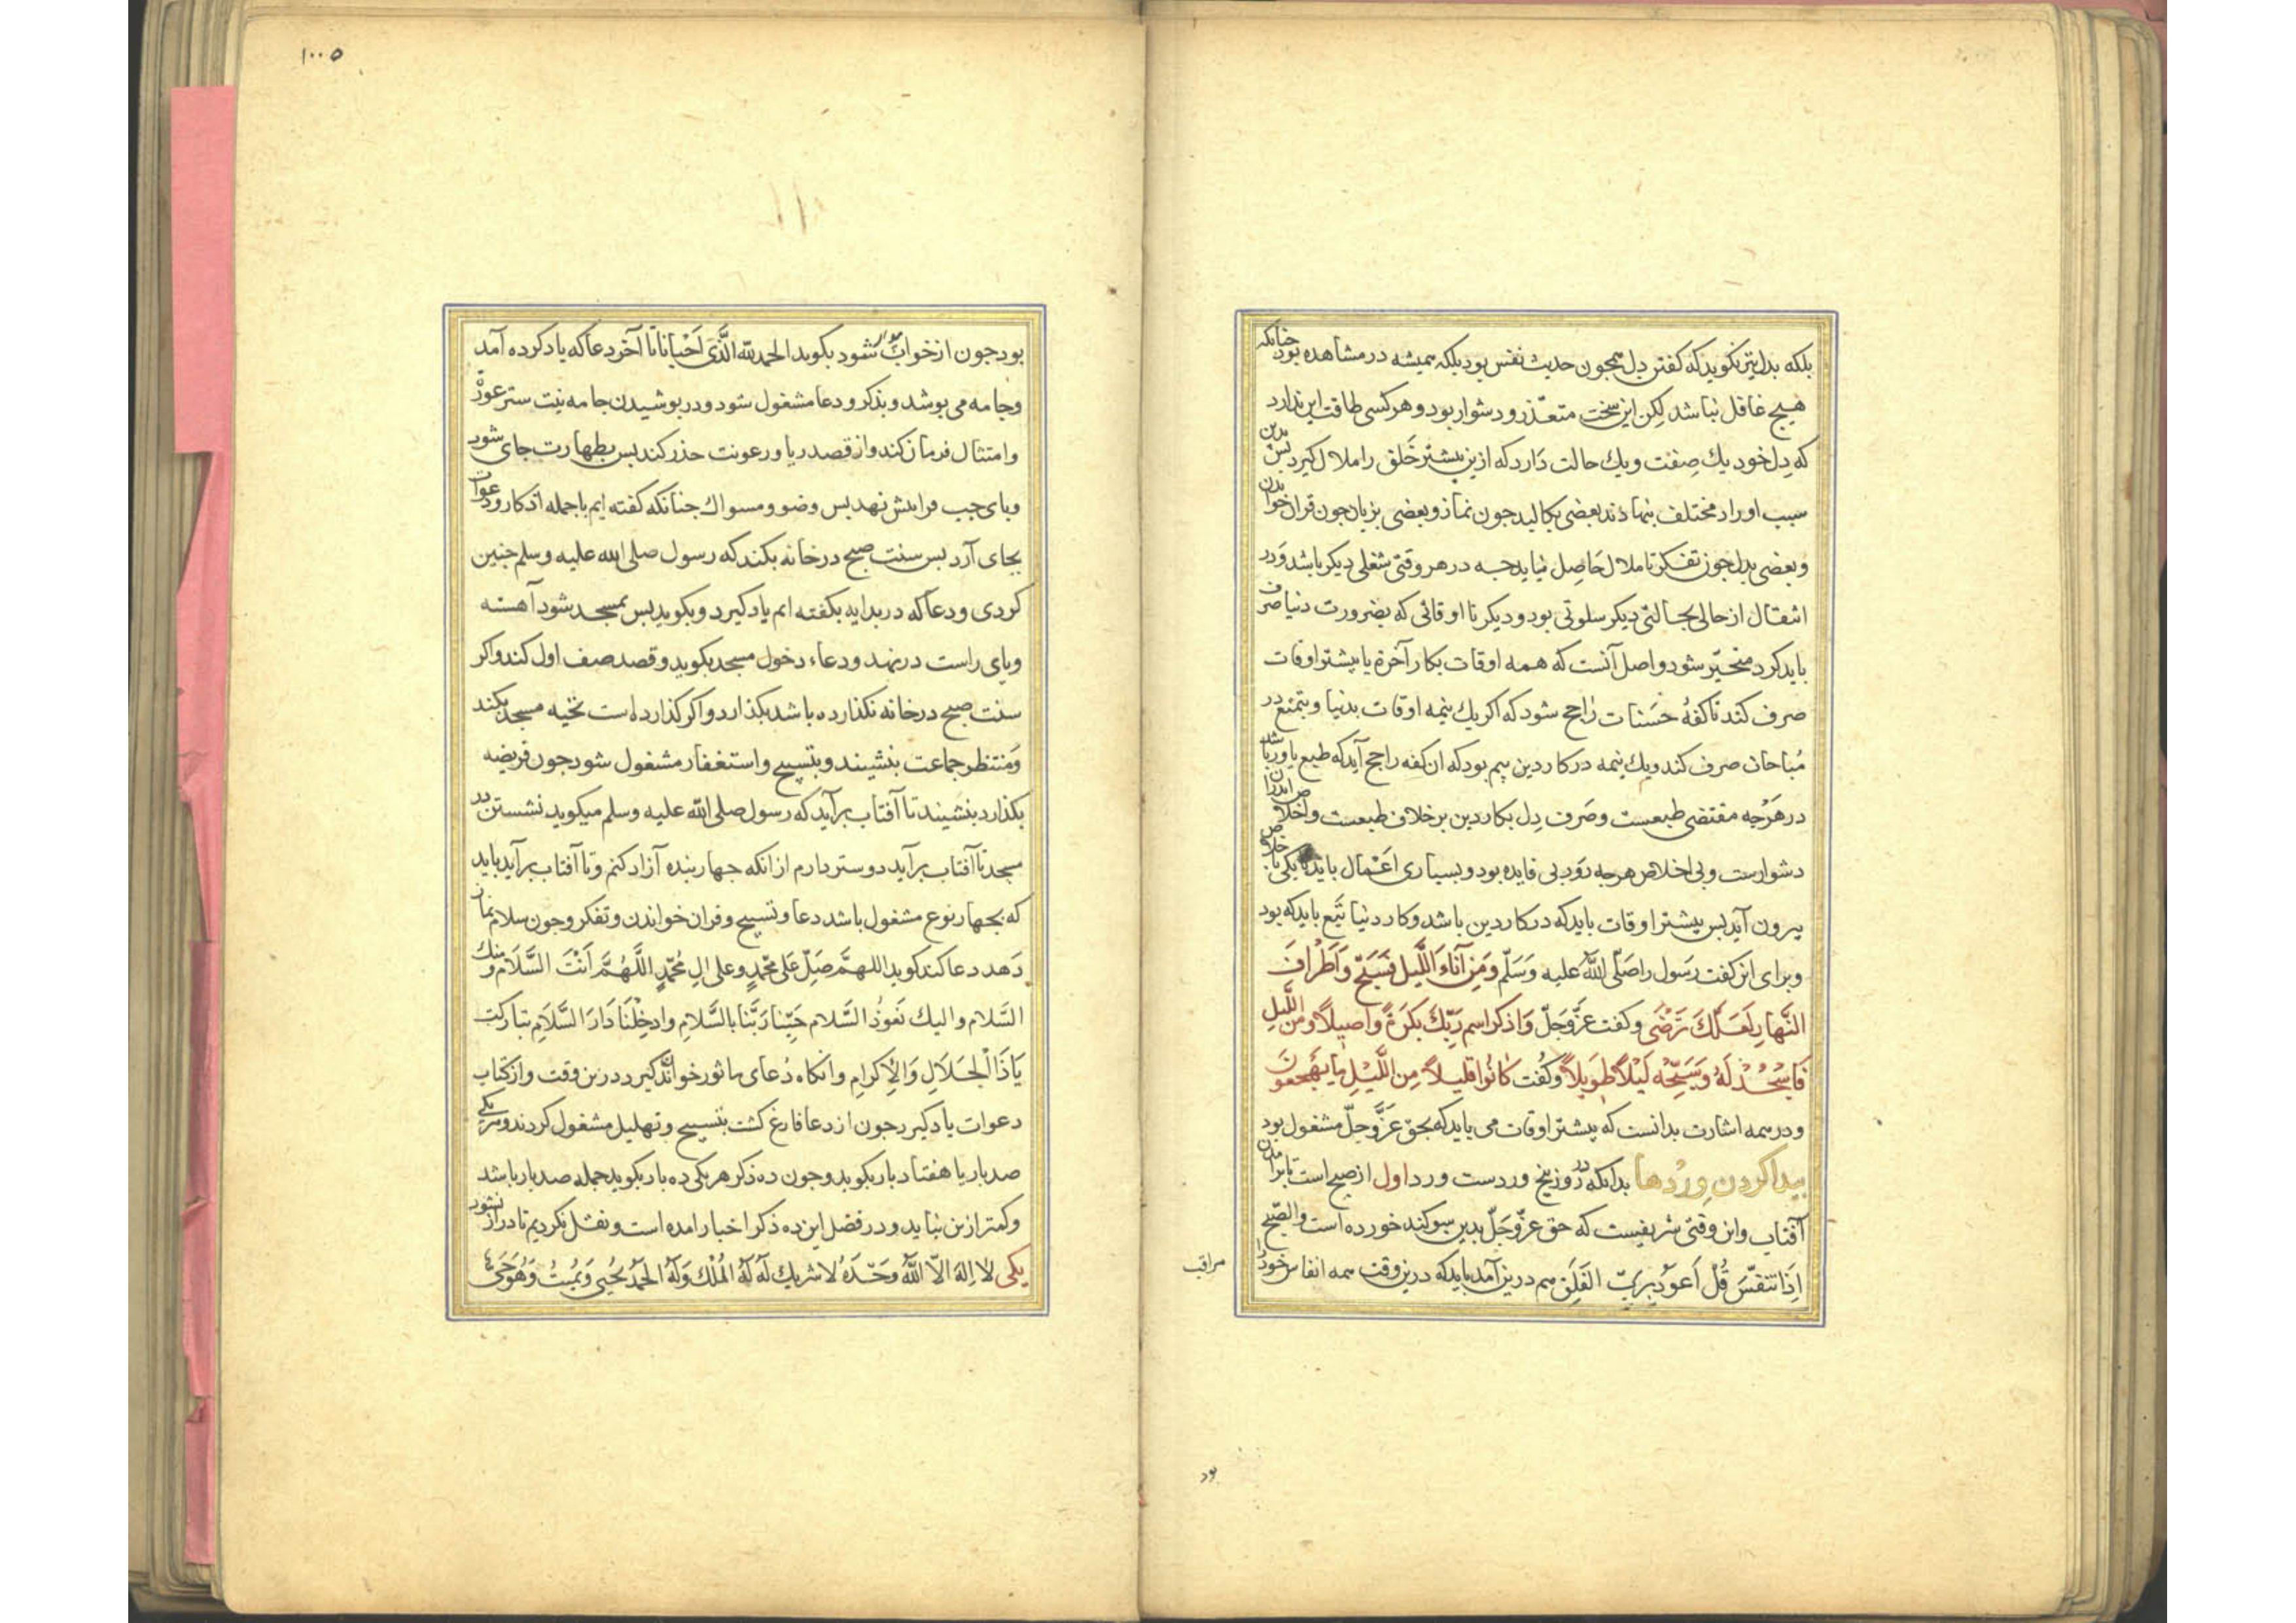 بلکه بدل نیز نکوید که کفتن دل همجون حدیث نفس بود بلکه همیشه در مشاهده بود جنانکه
هیج غافل نباشد لکن این سخت متعذر و دشوار بود و هر کسی طاقت این ندارد
که دل خود یك صفت و یك حالت دارد که ازین بیشتر خلق را ملال کیرد بس بدین
سبب اوراد مختلف بنهادند بعضی بکالبد جون نماز و بعضی بزبان جون قران خواندن
و بعضی بدل جون تفکر تا ملال حاصل نیاید جه در هر وقتی شغلی دیکر باشد و در
انتقال از حالی بحالتی دیکر سلوتی بود و دیکر تا اوقاتی که بضرورت دنیا صرف
باید کرد متحیّر شود و اصل آنست که همه اوقات بکار آخرة یا بیشتر اوقات
صرف کند تا کفهٔ حسنات راجح شود که اکر یك نیمه اوقات بدنیا و تمتع در
مباحات صرف کند و یك نیمه در کار دین بیم بود که ان کفه راجح آید که طبع یاور باشد
در هرجه مقتضی طبعست و صرف دل بکار دین بر خلاف طبعست و اخلاص اندران
دشوارست و بی اخلاص هرجه رود بی فایده بود و بسیاری اعمال باید تا یکی با خلاص
بیرون آید بس بیشتر اوقات باید که در کار دین باشد و کار دنیا تبع باید که بود
و برای این کفت رسول را صلّی اللّه علیه و سلّم وَمِنْ آناءِ اللَّیل فَسَبِّح وَاَطْرافَ
النَّهارِ لَعَلَّكَ تَرْضٰی و کفت عزّ و جلّ وَاذْکُر اسم رَبِّكَ بُکرَةً وَاصیلًا وَمِنَ اللَّیلِ
فَاسْجُدْ لَهُ وَسَبِّحْهُ لَیْلًا طَویلًا و کفت کانُوا قلیلًا مِنَ اللَّیْلِ ما یَهْجَعونَ
و در همه اشارت بدانست که بیشتر اوقات می باید که بحق عزّ و جلّ مشغول بود
بیدا کردن وردها بدانکه در روز بنج وردست ورد اول از صبح است تا برامدن
آفتاب و این وقتی شریفست که حق عزّ و جلّ بدین سوکند خورده است والصّبح
اِذَا تنفّسَ قُلْ اَعوذُ بِرَبِّ الفَلَقِ هم درین آمد باید که درین وقت همه انفاس خود را
مراقب
بود
۱۰۰۵
بود جون از خواب بیدار شود بکوید الحمد لله الّذی اَحْیانا تا آخر دعا که یاد کرده آمد
و جامه می بوشد و بذکر و دعا مشغول شود و در بوشیدن جامه نیت ستر عورت
و امتثال فرمان کند و از قصد ریا و رعونت حذر کند بس بطهارت جای شود
و بای جب فرابیش نهد بس وضو و مسواك جنانکه کفته ایم با جمله اذکار و دعوات
بجای آرد بس سنت صبح در خانه بکند که رسول صلی الله علیه وسلم جنین
کردی و دعا که در بدایه بکفته ایم یاد کیرد و بکوید بس بمسجد شود آهسته
و بای راست در نهد و دعاء دخول مسجد بکوید و قصد صف اول کند و اکر
سنت صبح در خانه نکذارده باشد بکذارد و اکر کذارده است تحیه مسجد بکند
و منتظر جماعت بنشیند و بتسبیح و استغفار مشغول شود جون فریضه
بکذارد بنشیند تا آفتاب برآید که رسول صلی اللّه علیه وسلم میکوید نشستن در
مسجد تا آفتاب برآید دوستر دارم از انکه جهار بنده آزاد کنم و تا آفتاب برآید باید
که بجهار نوع مشغول باشد دعا و تسبیح و قران خواندن و تفکر و جون سلام نماز
دهد دعا کند کوید اللهمّ صَلِّ عَلی محمّدٍ وعلی الِ مُحمّدٍ اللَّهُمَّ اَنْتَ السَّلام ومنك
السَّلام والیك نَعُوذُ السَّلام حَیِّنا رَبَّنا بالسَّلامِ وادخِلْنَا دَارَ السَّلامِ تبارکت
یَاذَا الْجَلَالِ وَالْاِکرامِ وانکاه دُعای ماثور خواندن کیرد درین وقت و از کتاب
دعوات یاد کیرد جون از دعا فارغ کشت بتسبیح و تهلیل مشغول کردند و هر یکی
صد بار یا هفتاد بار بکوید و جون ده ذکر هر یکی ده بار بکوید جمله صد بار باشد
و کمتر ازین نباید و در فضل این ده ذکر اخبار امده است و نقل نکردیم تا دراز نشود
یکی لا اِلهَ الّا اللّهُ وَحْدَهُ لا شریك لَهُ لَهُ المُلْك وَلَهُ الحَمْدُ یُحیی وَیُمیتُ وَهُوَ حَیٌّ